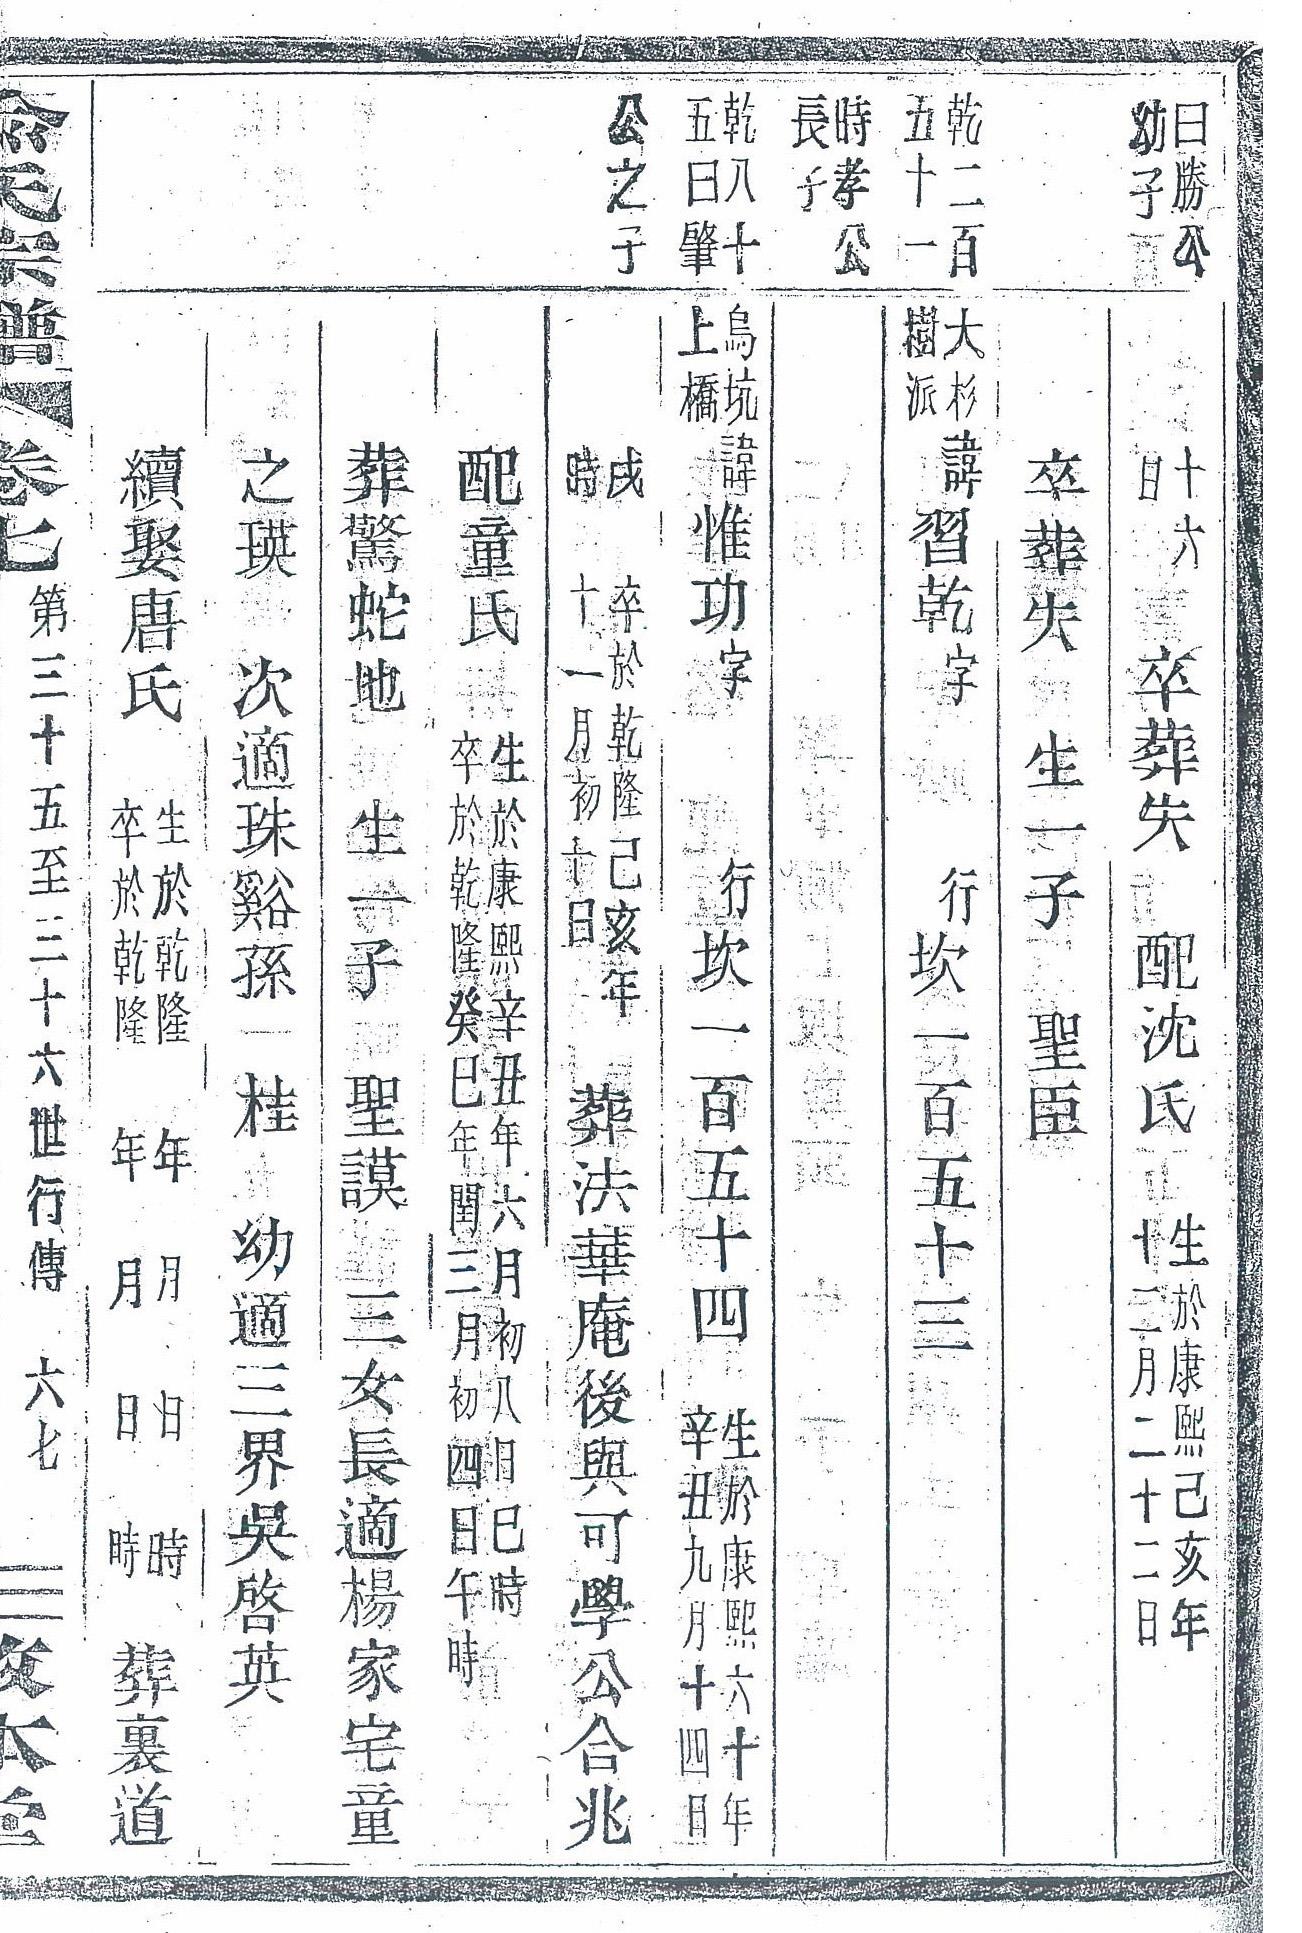 曰勝公
幼子
十六
日
卒葬失 配沈氏
生於康熙己亥年
十二月二十二日
卒葬失 生一子 聖臣
乾二百
五十一
大杉
樹派
諱習乾字 行坎一百五十三
時孝公
長子
乾八十
五曰肇
烏坑
上橋
諱惟功字 行坎一百五十四
生於康熙六十年
辛丑九月十四日
公之子
戌
時
卒於乾隆己亥年
十一月初十日
葬法華庵後與可學公合兆
配童氏
生於康熙辛丑年六月初八日巳時
卒於乾隆癸巳年閏三月初四日午時
葬驚蛇地 生一子 聖謨 三女長適楊家宅童
之瑛 次適珠谿孫 桂 幼適三界吳啓英
續娶唐氏
生於乾隆 年 月 日 時
卒於乾隆 年 月 日 時
葬裏道
俞氏宗譜 卷七 第三十五至三十六世行傳 六七 敦本堂